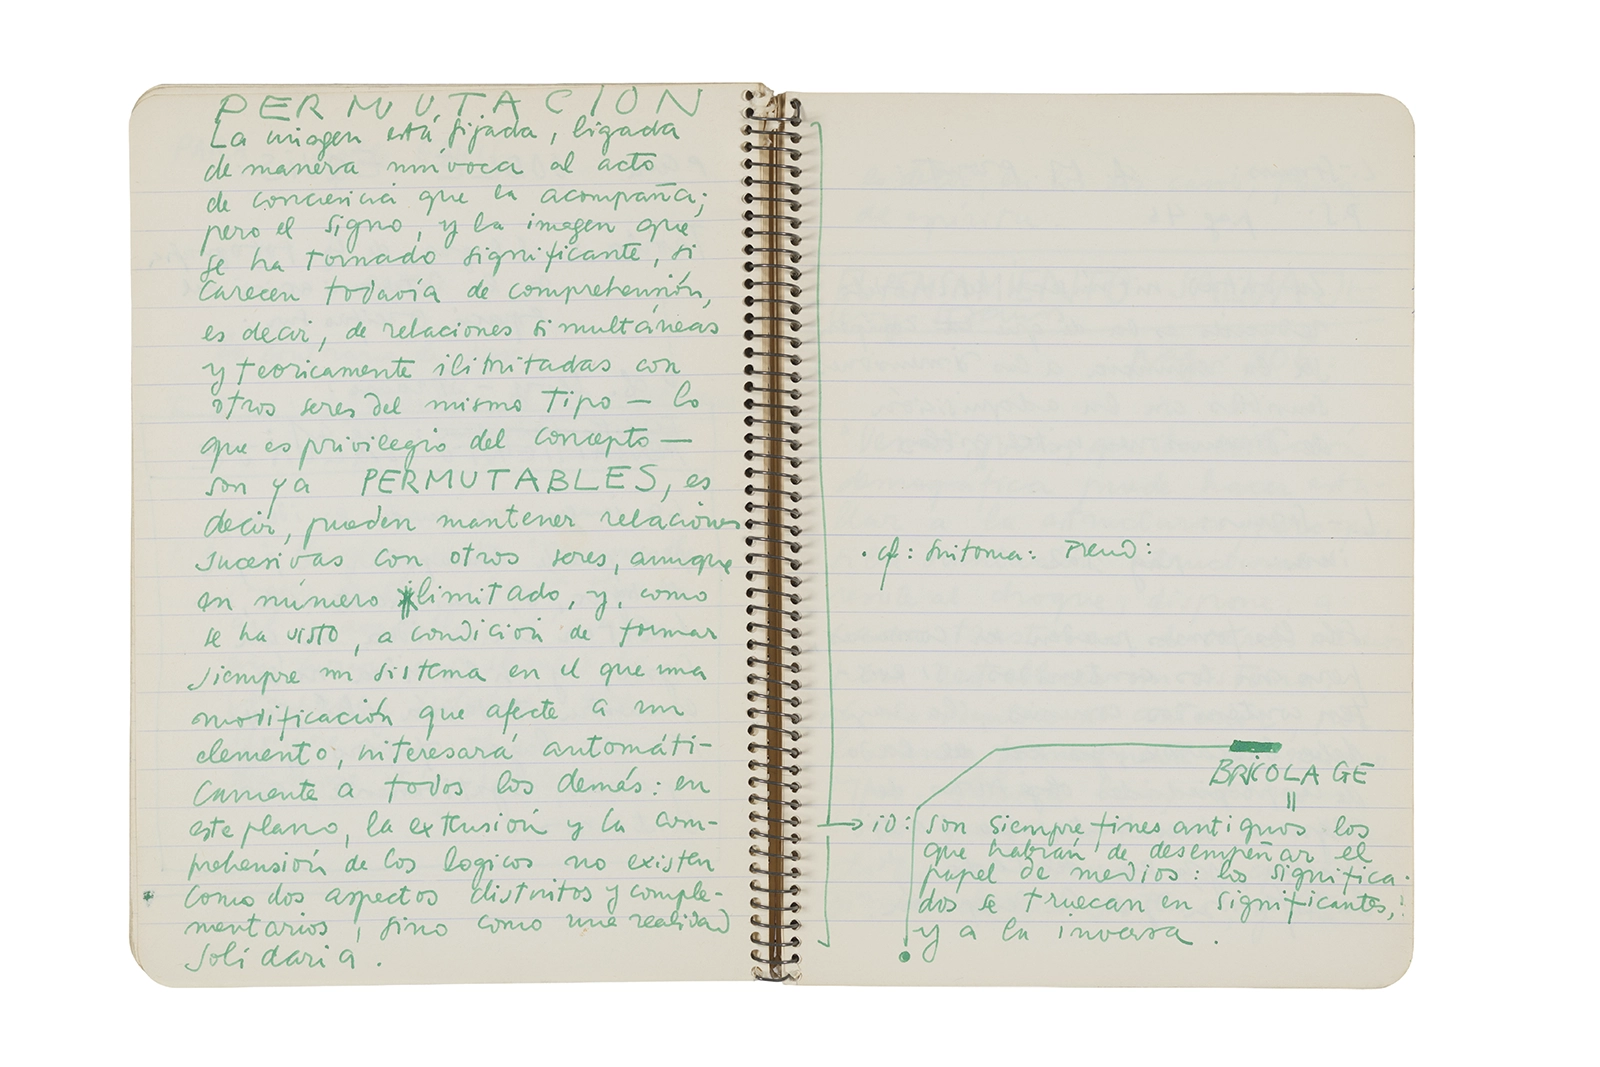 PERMUTACION
La imagen está fijada, ligada
de manera unívoca al acto
de conciencia que la acompaña;
pero el signo, y la imagen que
se ha tornado significante, si
carecen todavía de comprehensión,
es decir, de relaciones simultáneas
y teoricamente ilimitadas con
otros seres del mismo tipo — lo
que es privilegio del concepto —
son ya PERMUTABLES, es
decir, pueden mantener relaciones
sucesivas con otros seres, aunque
en número limitado, y, como
se ha visto, a condición de formar
siempre un sistema en el que una
modificación que afecte a un
elemento, interesará automáti-
camente a todos los demás: en
este plano, la extensión y la com-
prehensión de los logicos no existen
como dos aspectos distintos y comple-
mentarios, sino como una realidad
solidaria.
· cf: Sintoma: Freud:
BRICOLAGE
=
→ id: son siempre fines antiguos los
que habrán de desempeñar el
papel de medios: los significa-
dos se truecan en significantes,
y a la inversa.